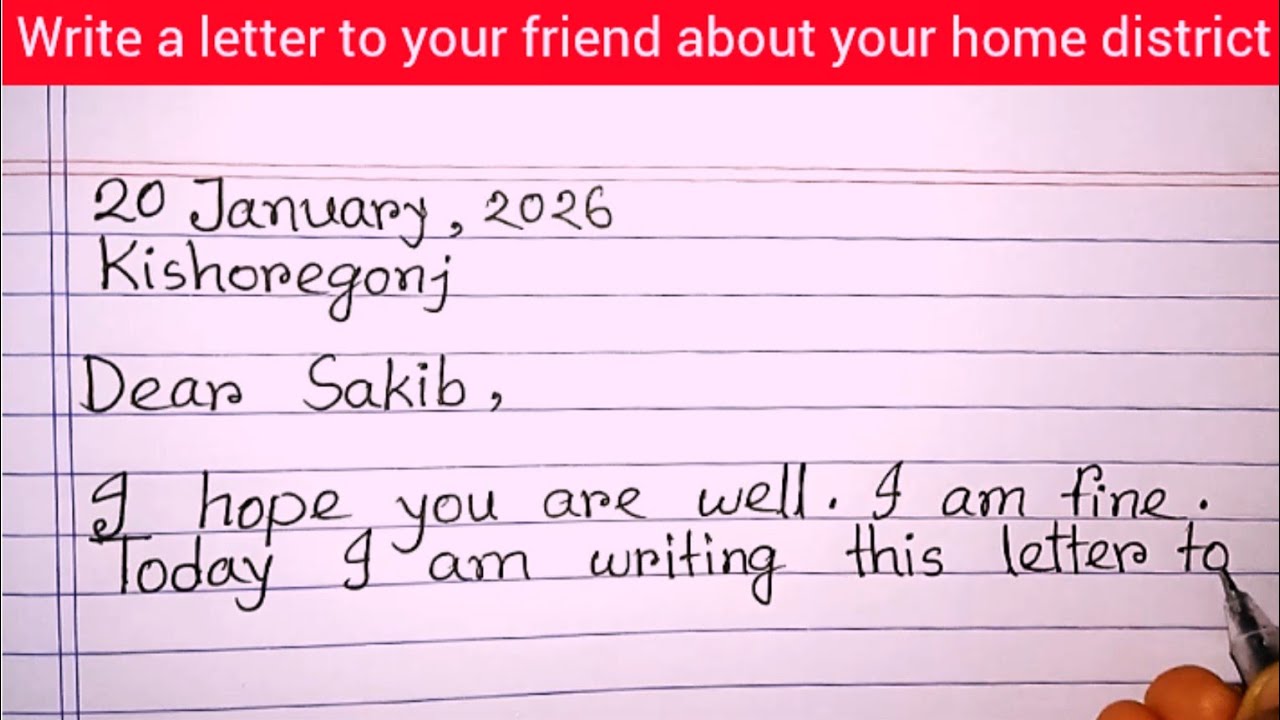 Write a letter to your friend about your home district
20 January, 2026
Kishoregonj
Dear Sakib,
I hope you are well. I am fine.
Today I am writing this letter to